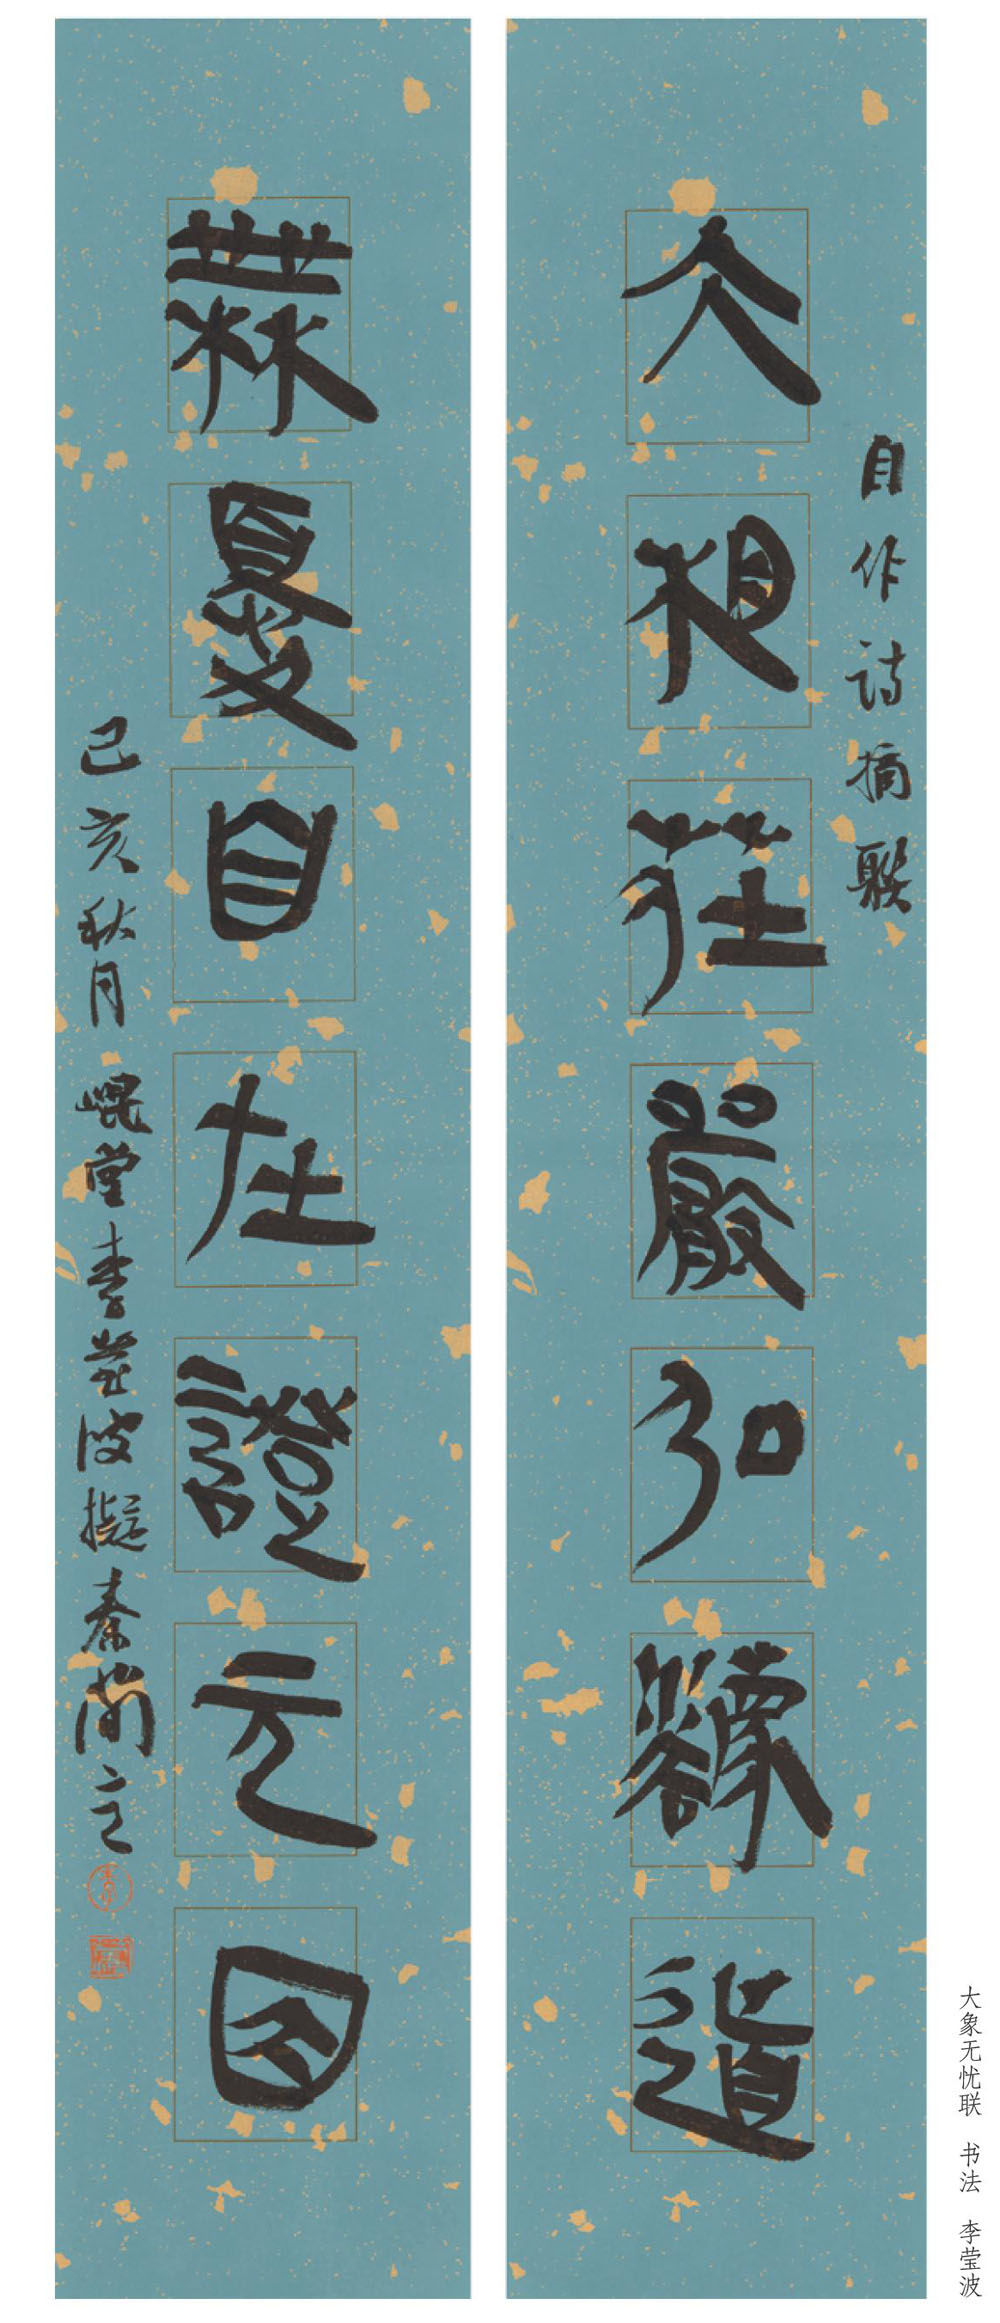 自作诗摘联
大相莊嚴弘道
無憂自在證元因
己亥秋月崐堂李莹波擬秦简
大象无忧联 书法 李莹波